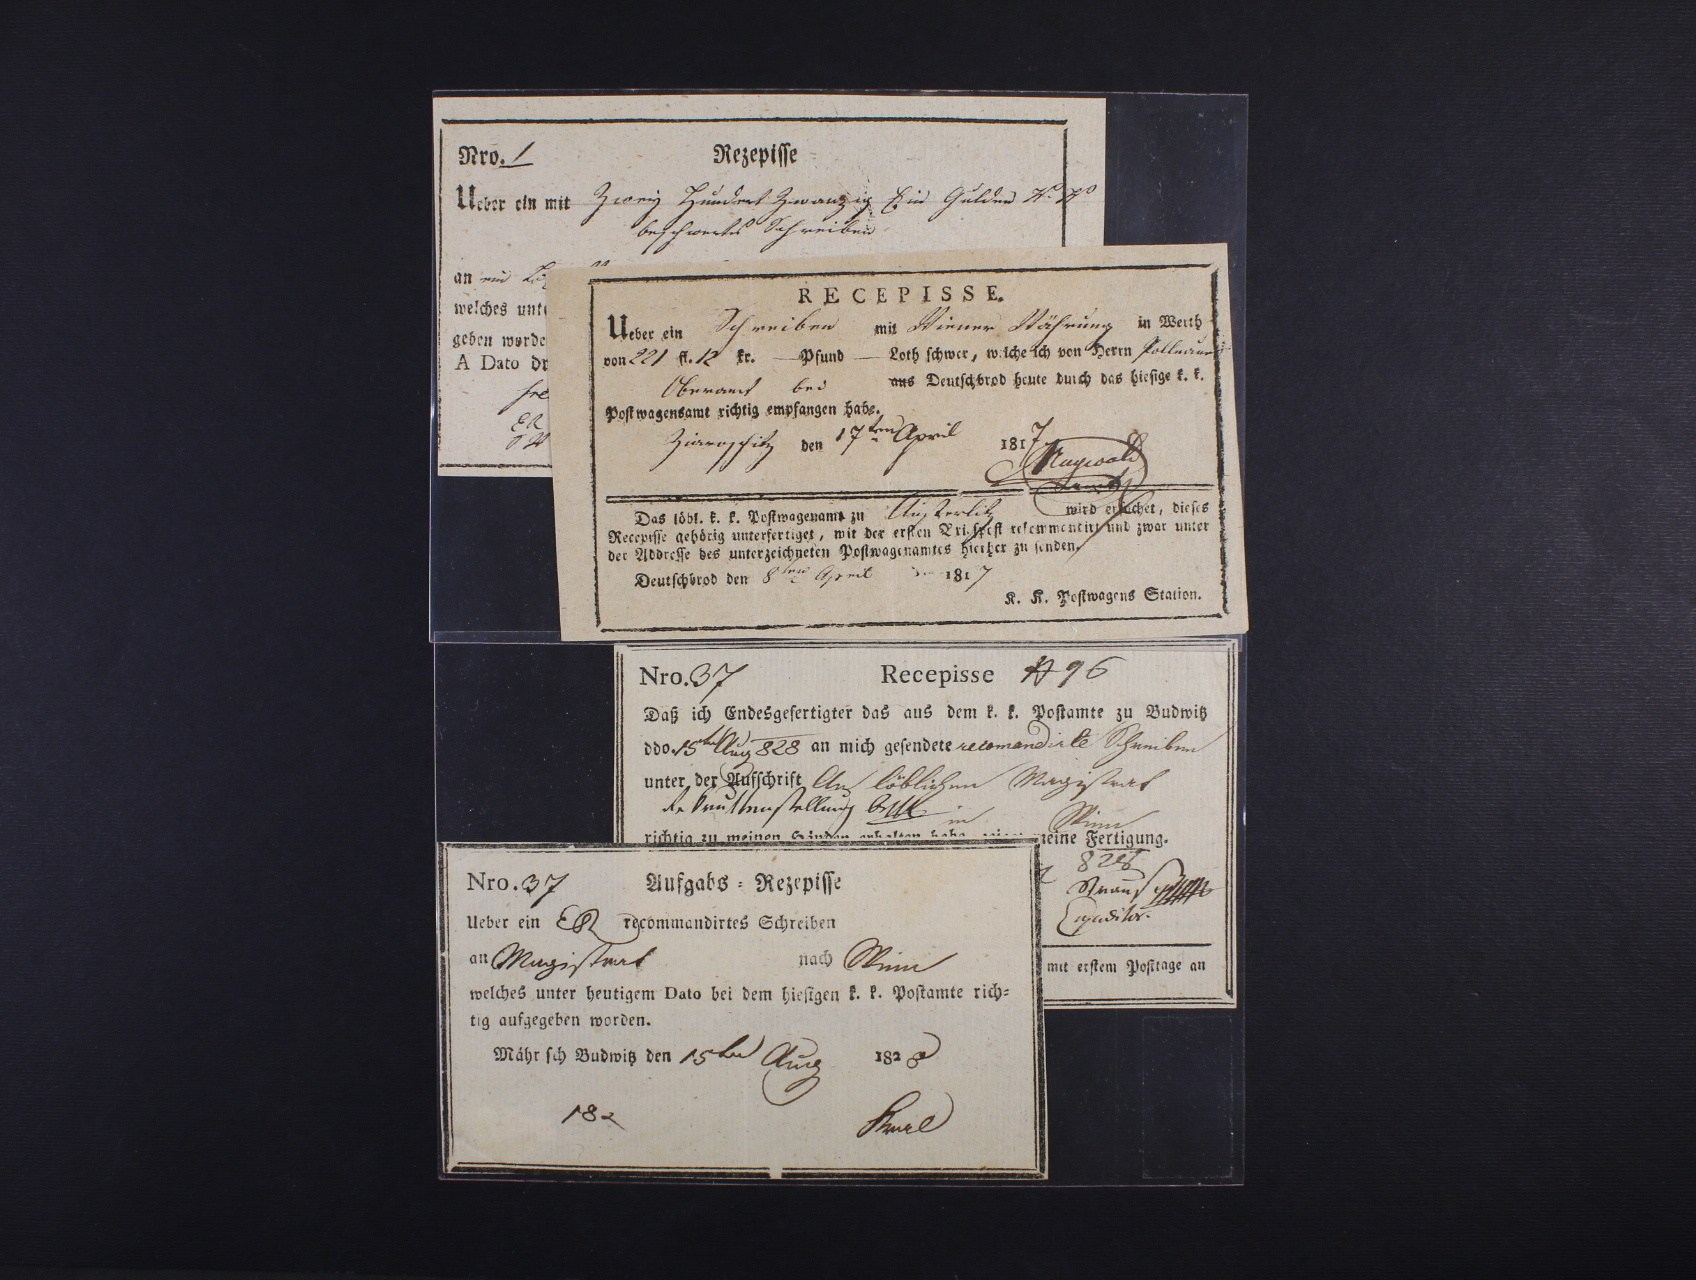 Nro. 1 Rezepisse
Ueber ein mit Zwey Hundert Zwanzig Ein Gulden
beschwertes Schreiben
an
welches unt
geben worde
A Dato
RECEPISSE.
Ueber ein Schreiben mit Wiener Währung in Werth
von 221 fl. 12 kr. — Pfund — Loth schwer, welche ich von Herrn
Oberamt bei aus Deutschbrod heute durch das hiesige k. k.
Postwagensamt richtig empfangen habe.
den 17ten April 1817
Das löbl. k. k. Postwagenamt zu Austerlitz wird ersuchet, dieses
Recepisse gehörig unterfertiget, mit der ersten Briefpost rekommentirt und zwar unter
der Addresse des unterzeichneten Postwagenamtes hierher zu senden.
Deutschbrod den 8ten April 1817
K. K. Postwagens Station.
Nro. 37 Recepisse 96
Daß ich Endesgefertigter das aus dem k. k. Postamte zu Budwitz
ddo. 15ten Aug 828 an mich gesendete recomandirte Schreiben
unter der Aufschrift An löblichen Magistrat
in Wien
richtig zu meinen Händen erhalten habe, meine Fertigung.
828
Expeditor.
mit erstem Posttage an
Nro. 37 Aufgabs = Rezepisse
Ueber ein ER recommandirtes Schreiben
an Magistrat nach Wien
welches unter heutigem Dato bei dem hiesigen k. k. Postamte rich=
tig aufgegeben worden.
Mähr sch Budwitz den 15ten Aug 1828
182